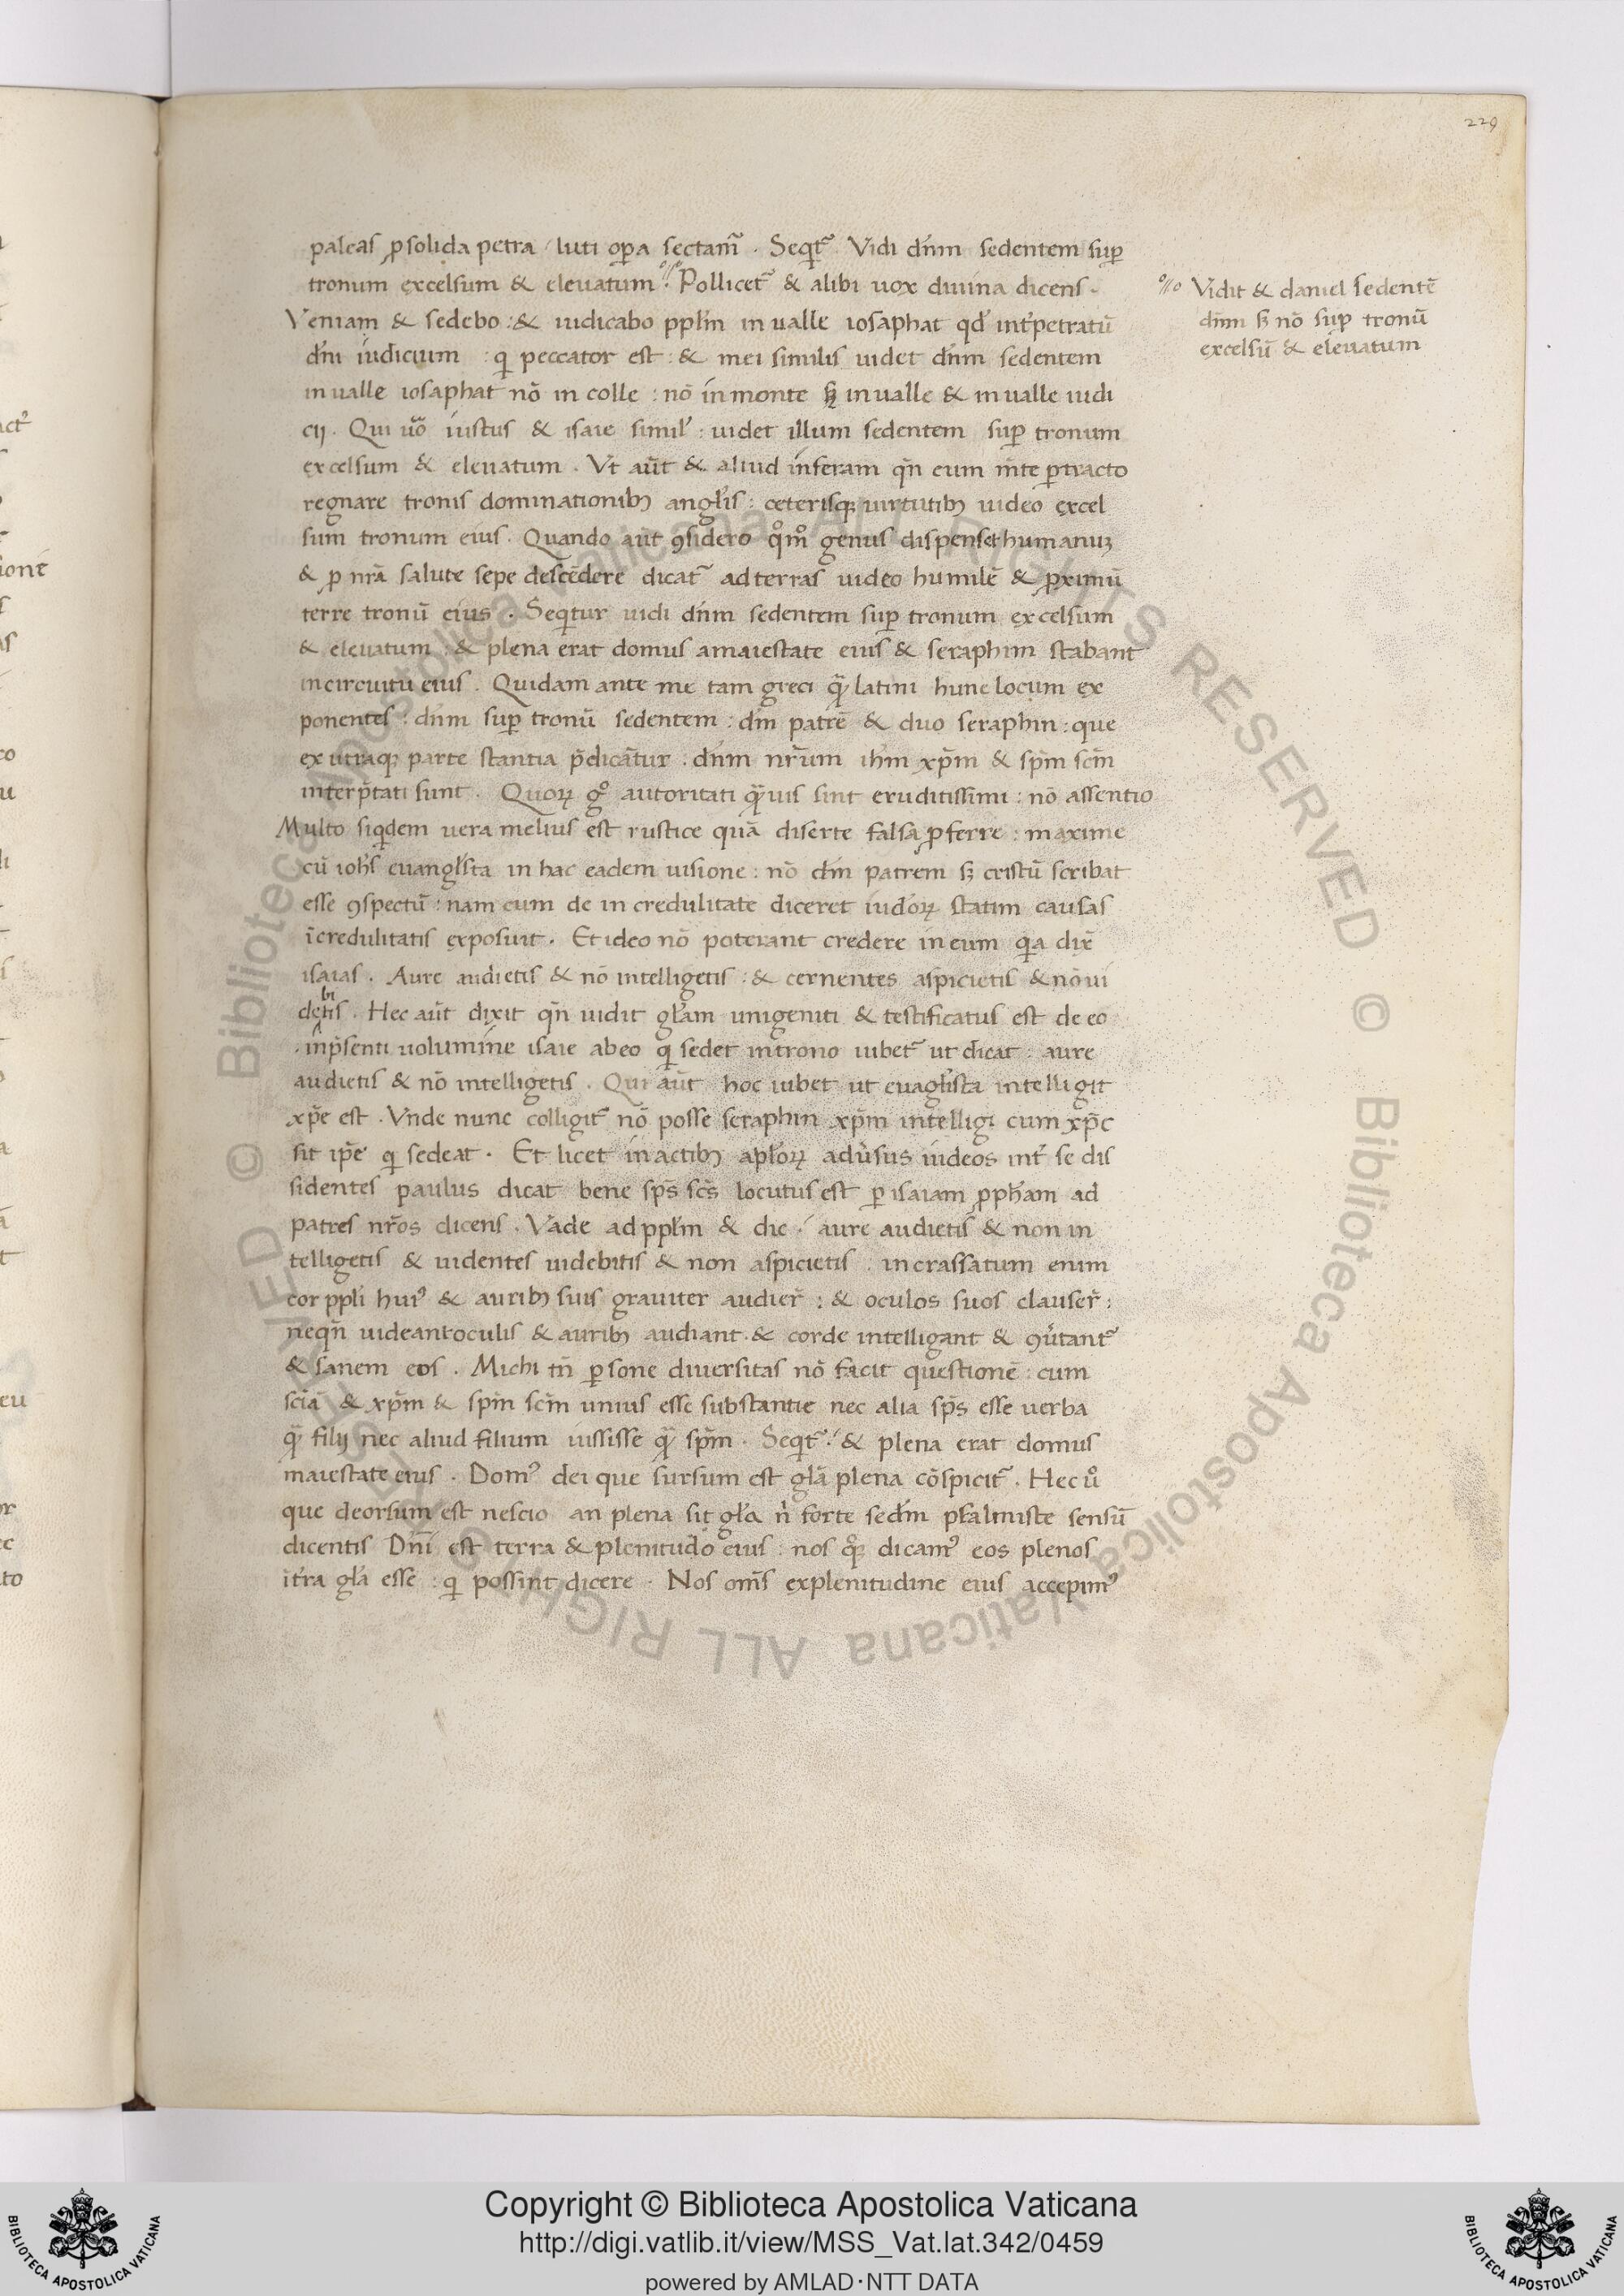 229
paleas ꝓ solida petra luti oꝑa sectam̃. Seqͥt᷑ Vidi dn̄m sedentem suꝑ
tronum excelsum & eleuatum. Pollicet᷑ & alibi uox diuina dicens.
Veniam & sedebo: & iudicabo ppl̄m in ualle iosaphat qd̛ int̛petratū
dn̄i iudicium: qͥ peccator est: & mei similis uidet dn̄m sedentem
in ualle iosaphat nō in colle: nō in monte sꝫ in ualle & in ualle iudi
cij. Qui uͦo iustus & isaie simil̛: uidet illum sedentem suꝑ tronum
excelsum & eleuatum. Vt aūt & aliud inferam qn̄ eum m̄te ꝑtracto
regnare tronis dominationibꝫ angl̛is: ceterisqꝫ uirtutibꝫ uideo excel
sum tronum eius. Quando aūt ꝯsidero qͦmͦ genus dispenset humanuꝫ
& ꝓ nr̄a salute sepe descēdere dicat᷑ ad terras uideo humilē & ꝓximū
terre tronū eius. Seqͥtur uidi dn̄m sedentem suꝑ tronum excelsum
& eleuatum: & plena erat domus amaiestate eius & seraphim stabant
in circuitu eius. Quidam ante me tam greci qᷓ latini hunc locum ex
ponentes: dn̄m suꝑ tronū sedentem: dm̄ patrē & duo seraphin: que
ex utraqꝫ parte stantia p̄dicāt̄ur: dn̄m nr̄um ihm̄ xp̄m & spm̄ scm̄
interp̄tati sunt. Quoꝝ gͦ autoritati qᷓuis sint eruditissimi: nō assentio
Multo siqͥdem uera melius est rustice quā diserte falsa ꝓferre: maxime
cū ioh̄s euangl̛ista in hac eadem uisione: nō dm̄ patrem sꝫ cristū scribat
esse ꝯspectū: nam cum de in credulitate diceret iud̛oꝝ statim causas
īcredulitatis exposuit. Et ideo nō poterant credere in eum qͥa dix̄
isaias. Aure audietis & nō intelligetis: & cernentes aspicietis & nō ui
debitis. Hec aūt dixit qn̄ uidit gl̄am unigeniti & testificatus est de eo
in p̄senti uolumine isaie abeo qͥ sedet in trono iubet᷑ ut dicat: aure
audietis & nō intelligetis. Qui aūt hoc iubet ut euagl̛ista intelligit
xp̄c est. Vnde nunc colligit᷑ nō posse seraphin xp̄m intelligi cum xp̄c
sit ip̄e qͥ sedeat. Et licet in actibꝫ apl̛oꝝ adưsus iudeos int̛ se dis
sidentes paulus dicat bene sp̄s sc̄s locutus est ꝑ isaiam ꝓph̄am ad
patres nr̄os dicens. Vade ad ppl̄m & dic: aure audietis & non in
telligetis & uidentes uidebitis & non aspicietis. incrassatum enim
cor ppl̄i huiꝰ & auribꝫ suis grauiter audier̄: & oculos suos clauser̄:
neqn̄ uideant oculis & auribꝫ audiant. & corde intelligant & ꝯưtant᷑
& sanem eos. Michi tn̄ ꝑsone diuersitas nō facit questionē: cum
sciā & xp̄m & spm̄ scm̄ unius esse substantie nec alia sp̄s esse uerba
qᷓ filij nec aliud filium iussisse qᷓ spm̄. Seqͥt᷑. & plena erat domus
maiestate eius. Domꝰ dei que sursum est gl̄a plena cōspicit᷑. Hec uͦ
que deorsum est nescio an plena sit gl̄a nͥ forte secdm̄ psalmiste sensū
dicentis Dn̄i est terra & plenitudo eius: nos qͦꝫ dicamꝰ eos plenos
it̛ra gl̄a esse: qͥ possint dicere. Nos om̄s explenitudine eius accepimꝰ
Vidit & daniel sedentē
dn̄m sꝫ nō suꝑ tronū
excelsū & eleuatum
Copyright © Biblioteca Apostolica Vaticana
http://digi.vatlib.it/view/MSS_Vat.lat.342/0459
powered by AMLAD·NTT DATA
BIBLIOTECA APOSTOLICA VATICANA
BIBLIOTECA APOSTOLICA VATICANA